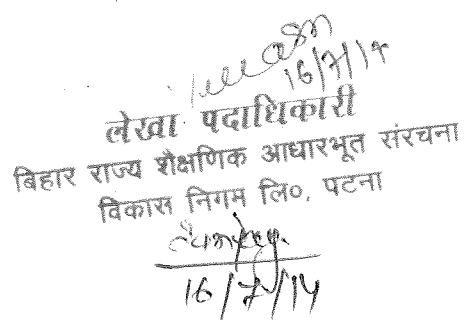 16/7/14
लेखा पदाधिकारी
बिहार राज्य शैक्षणिक आधारभूत संरचना
विकास निगम लि०, पटना
16/7/14